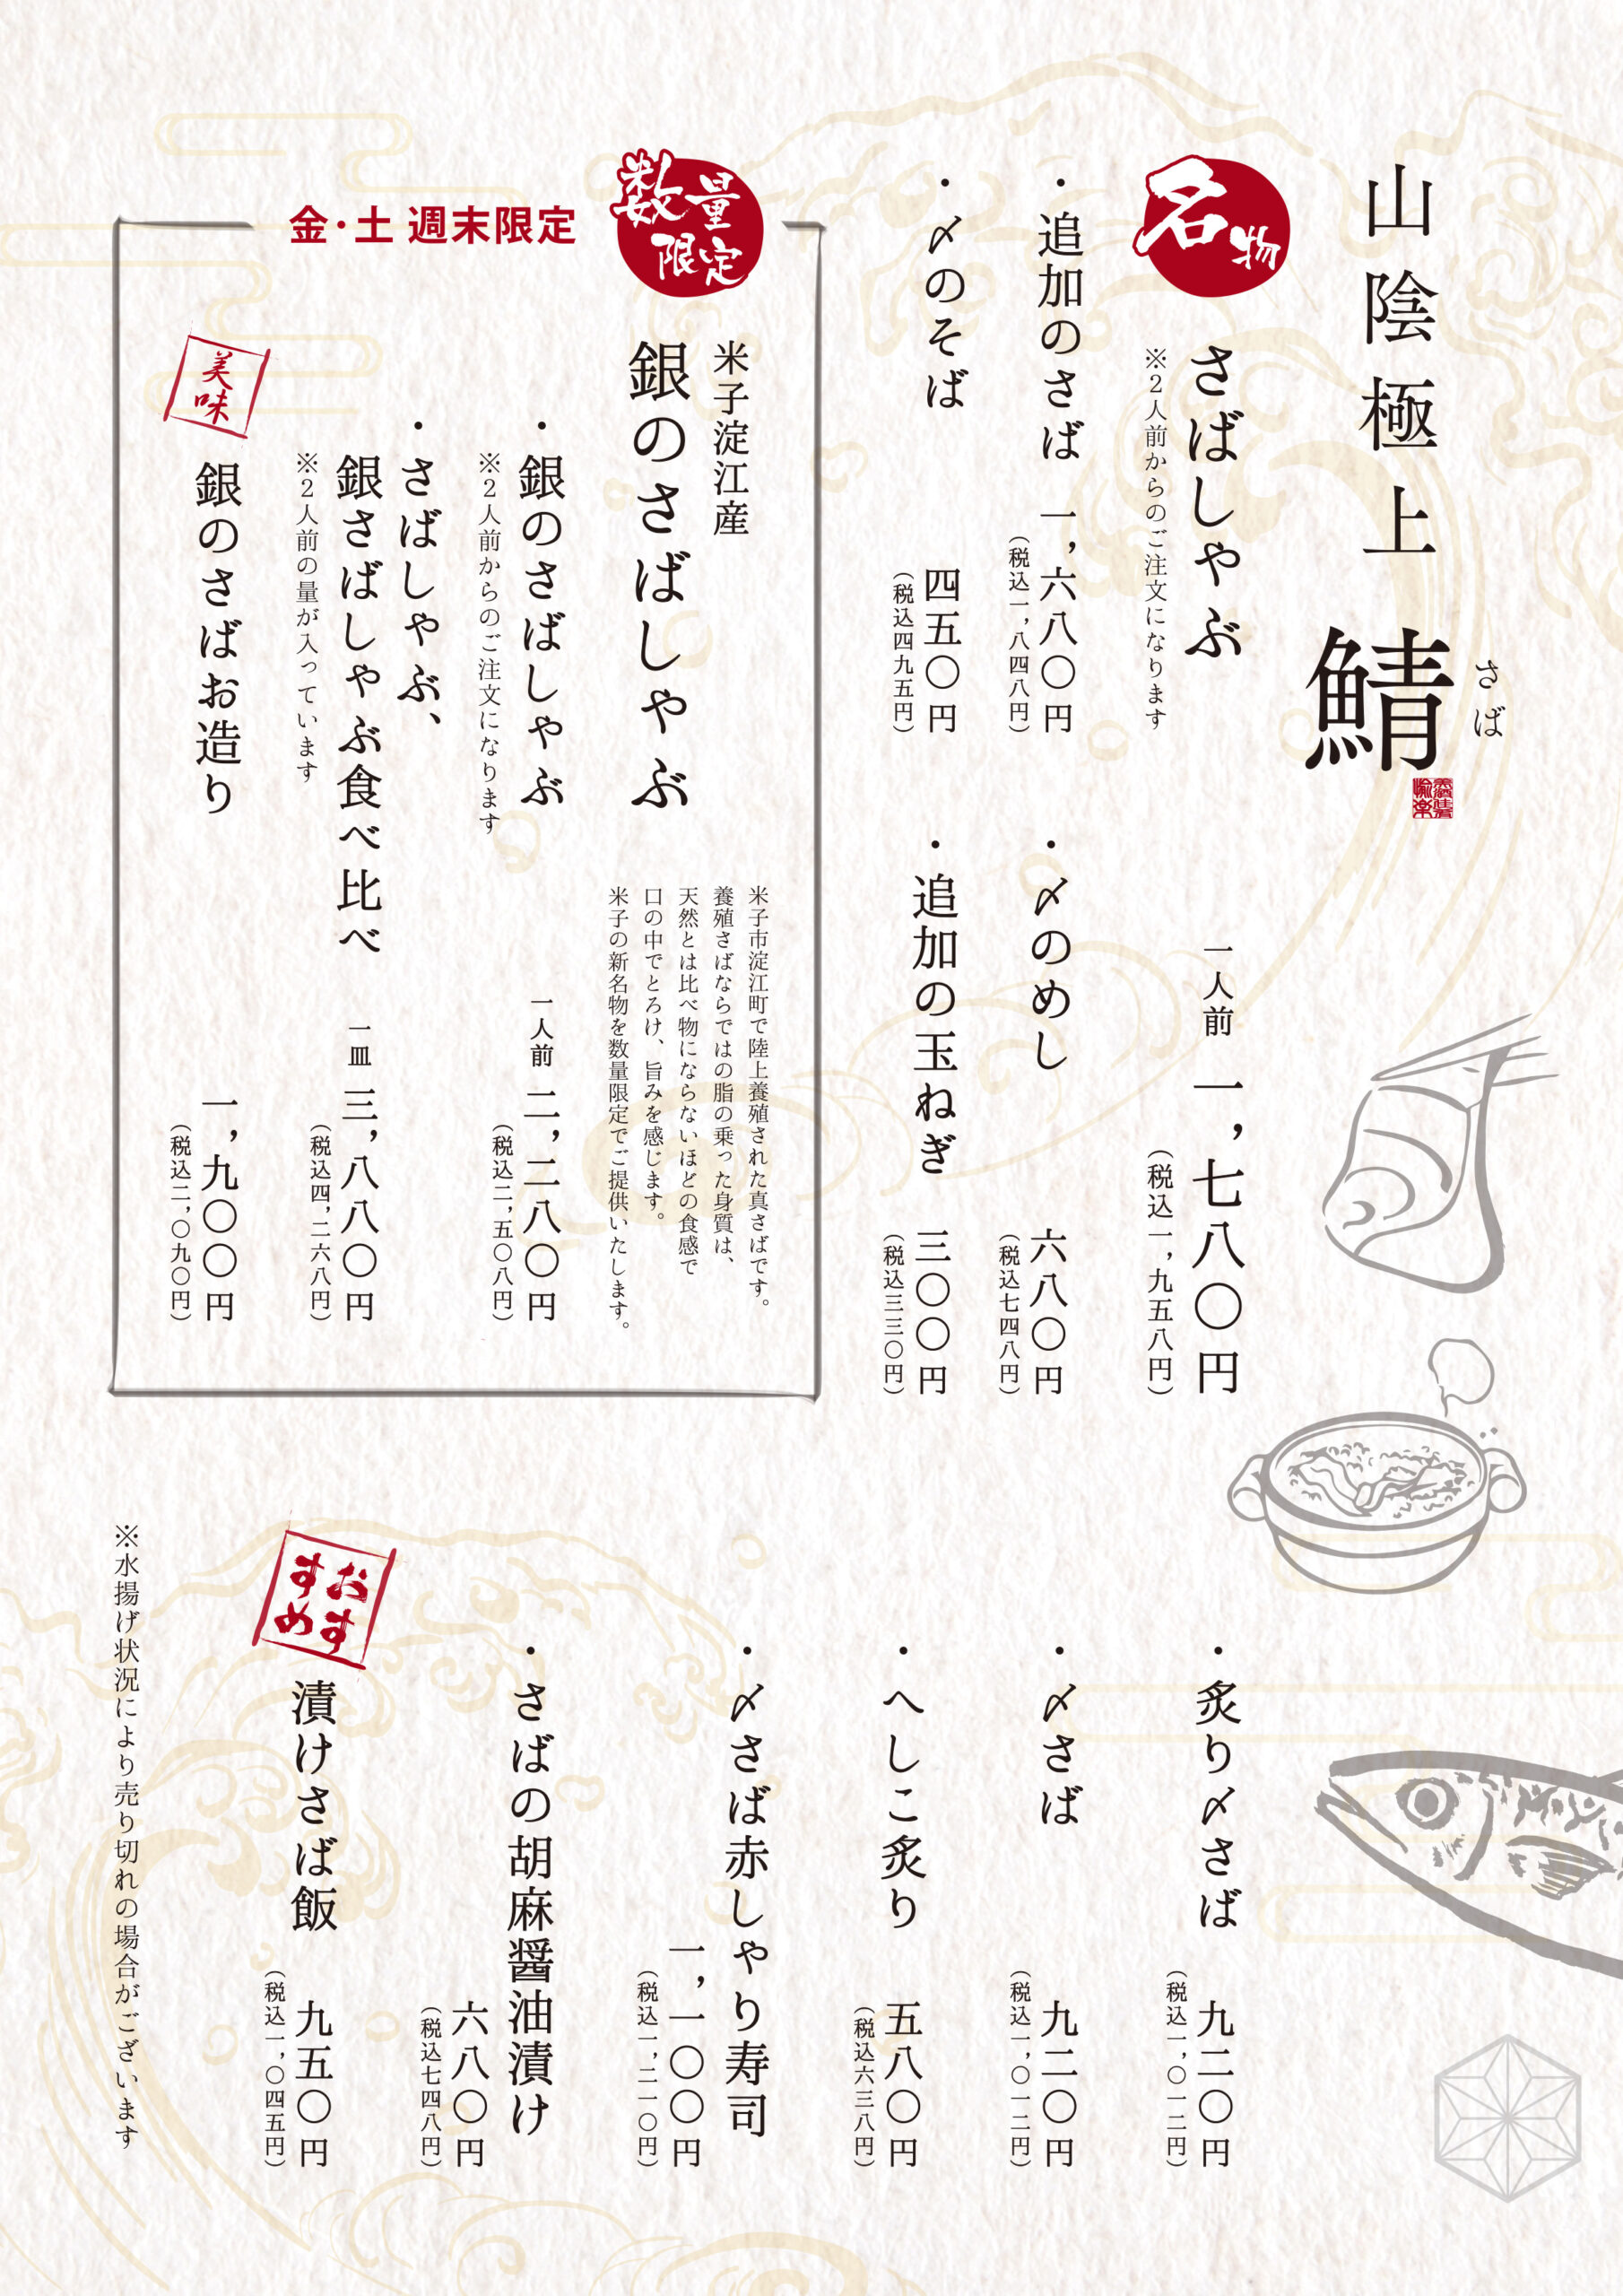 山陰極上 鯖
さば
名物
さばしゃぶ 一人前 一,七八〇円
(税込一,九五八円)
※2人前からのご注文になります
・追加のさば 一,六八〇円
(税込一,八四八円)
・〆のめし 六八〇円
(税込七四八円)
・〆のそば 四五〇円
(税込四九五円)
・追加の玉ねぎ 三〇〇円
(税込三三〇円)
数量限定
金・土 週末限定
米子淀江産
銀のさばしゃぶ
米子市淀江町で陸上養殖された真さばです。
養殖さばならではの脂の乗った身質は、
天然とは比べ物にならないほどの食感で
口の中でとろけ、旨みを感じます。
米子の新名物を数量限定でご提供いたします。
・銀のさばしゃぶ 一人前 二,二八〇円
(税込二,五〇八円)
※2人前からのご注文になります
・さばしゃぶ、
銀さばしゃぶ食べ比べ 一皿 三,八八〇円
(税込四,二六八円)
※2人前の量が入っています
美味
銀のさばお造り 一,九〇〇円
(税込二,〇九〇円)
・炙り〆さば 九二〇円
(税込一,〇一二円)
・〆さば 九二〇円
(税込一,〇一二円)
・へしこ炙り 五八〇円
(税込六三八円)
・〆さば赤しゃり寿司
一,一〇〇円
(税込一,二一〇円)
・さばの胡麻醤油漬け
六八〇円
(税込七四八円)
おすすめ
漬けさば飯 九五〇円
(税込一,〇四五円)
※水揚げ状況により売り切れの場合がございます